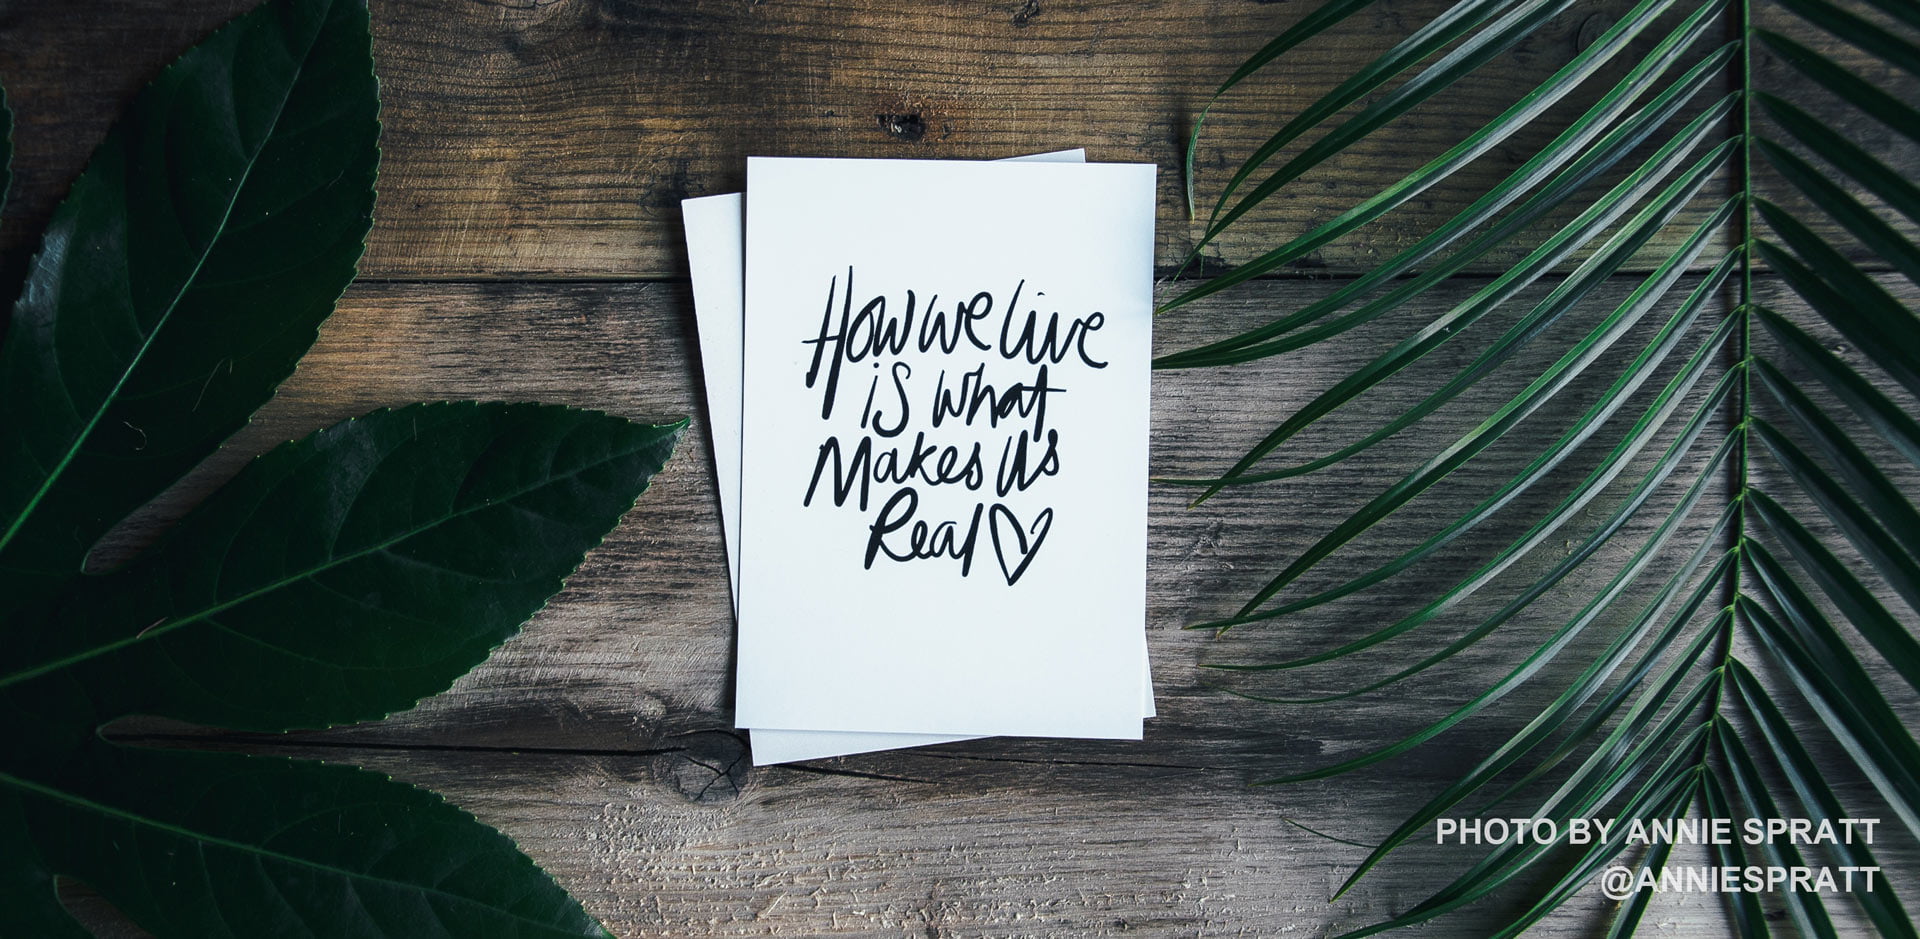 How we live
is what
Makes us
Real
PHOTO BY ANNIE SPRATT
@ANNIESPRATT